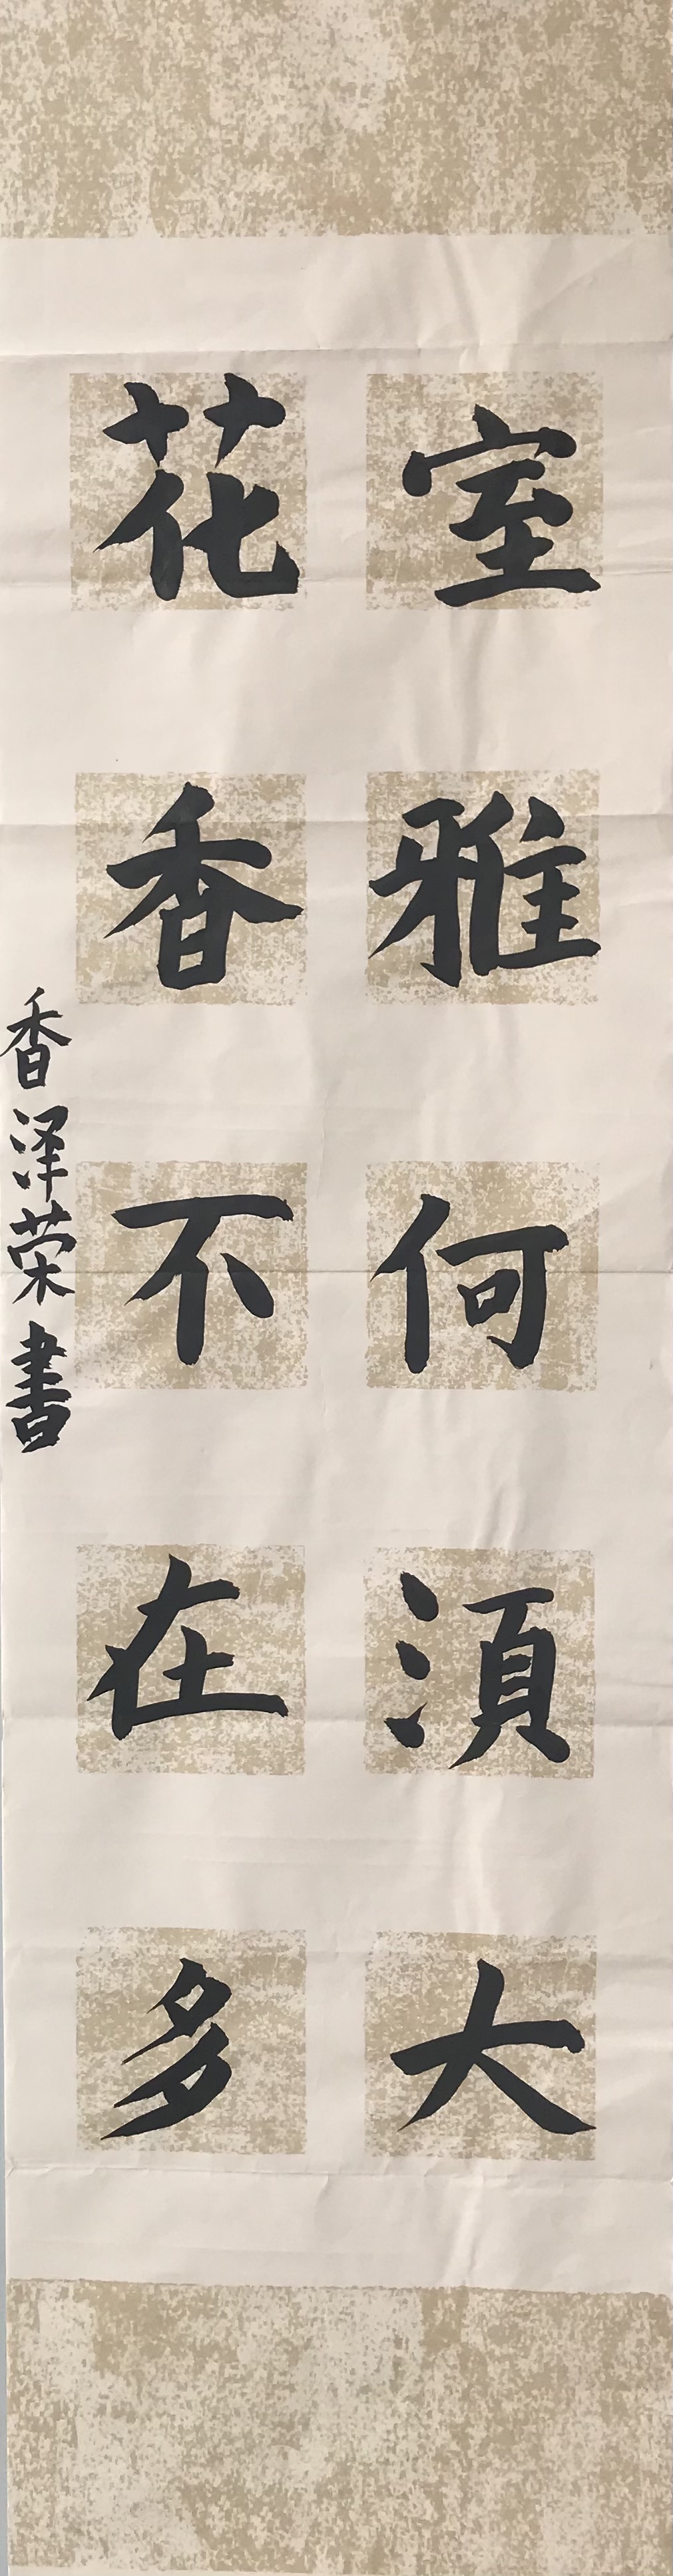 室雅何湏大
花香不在多
香泽荣書